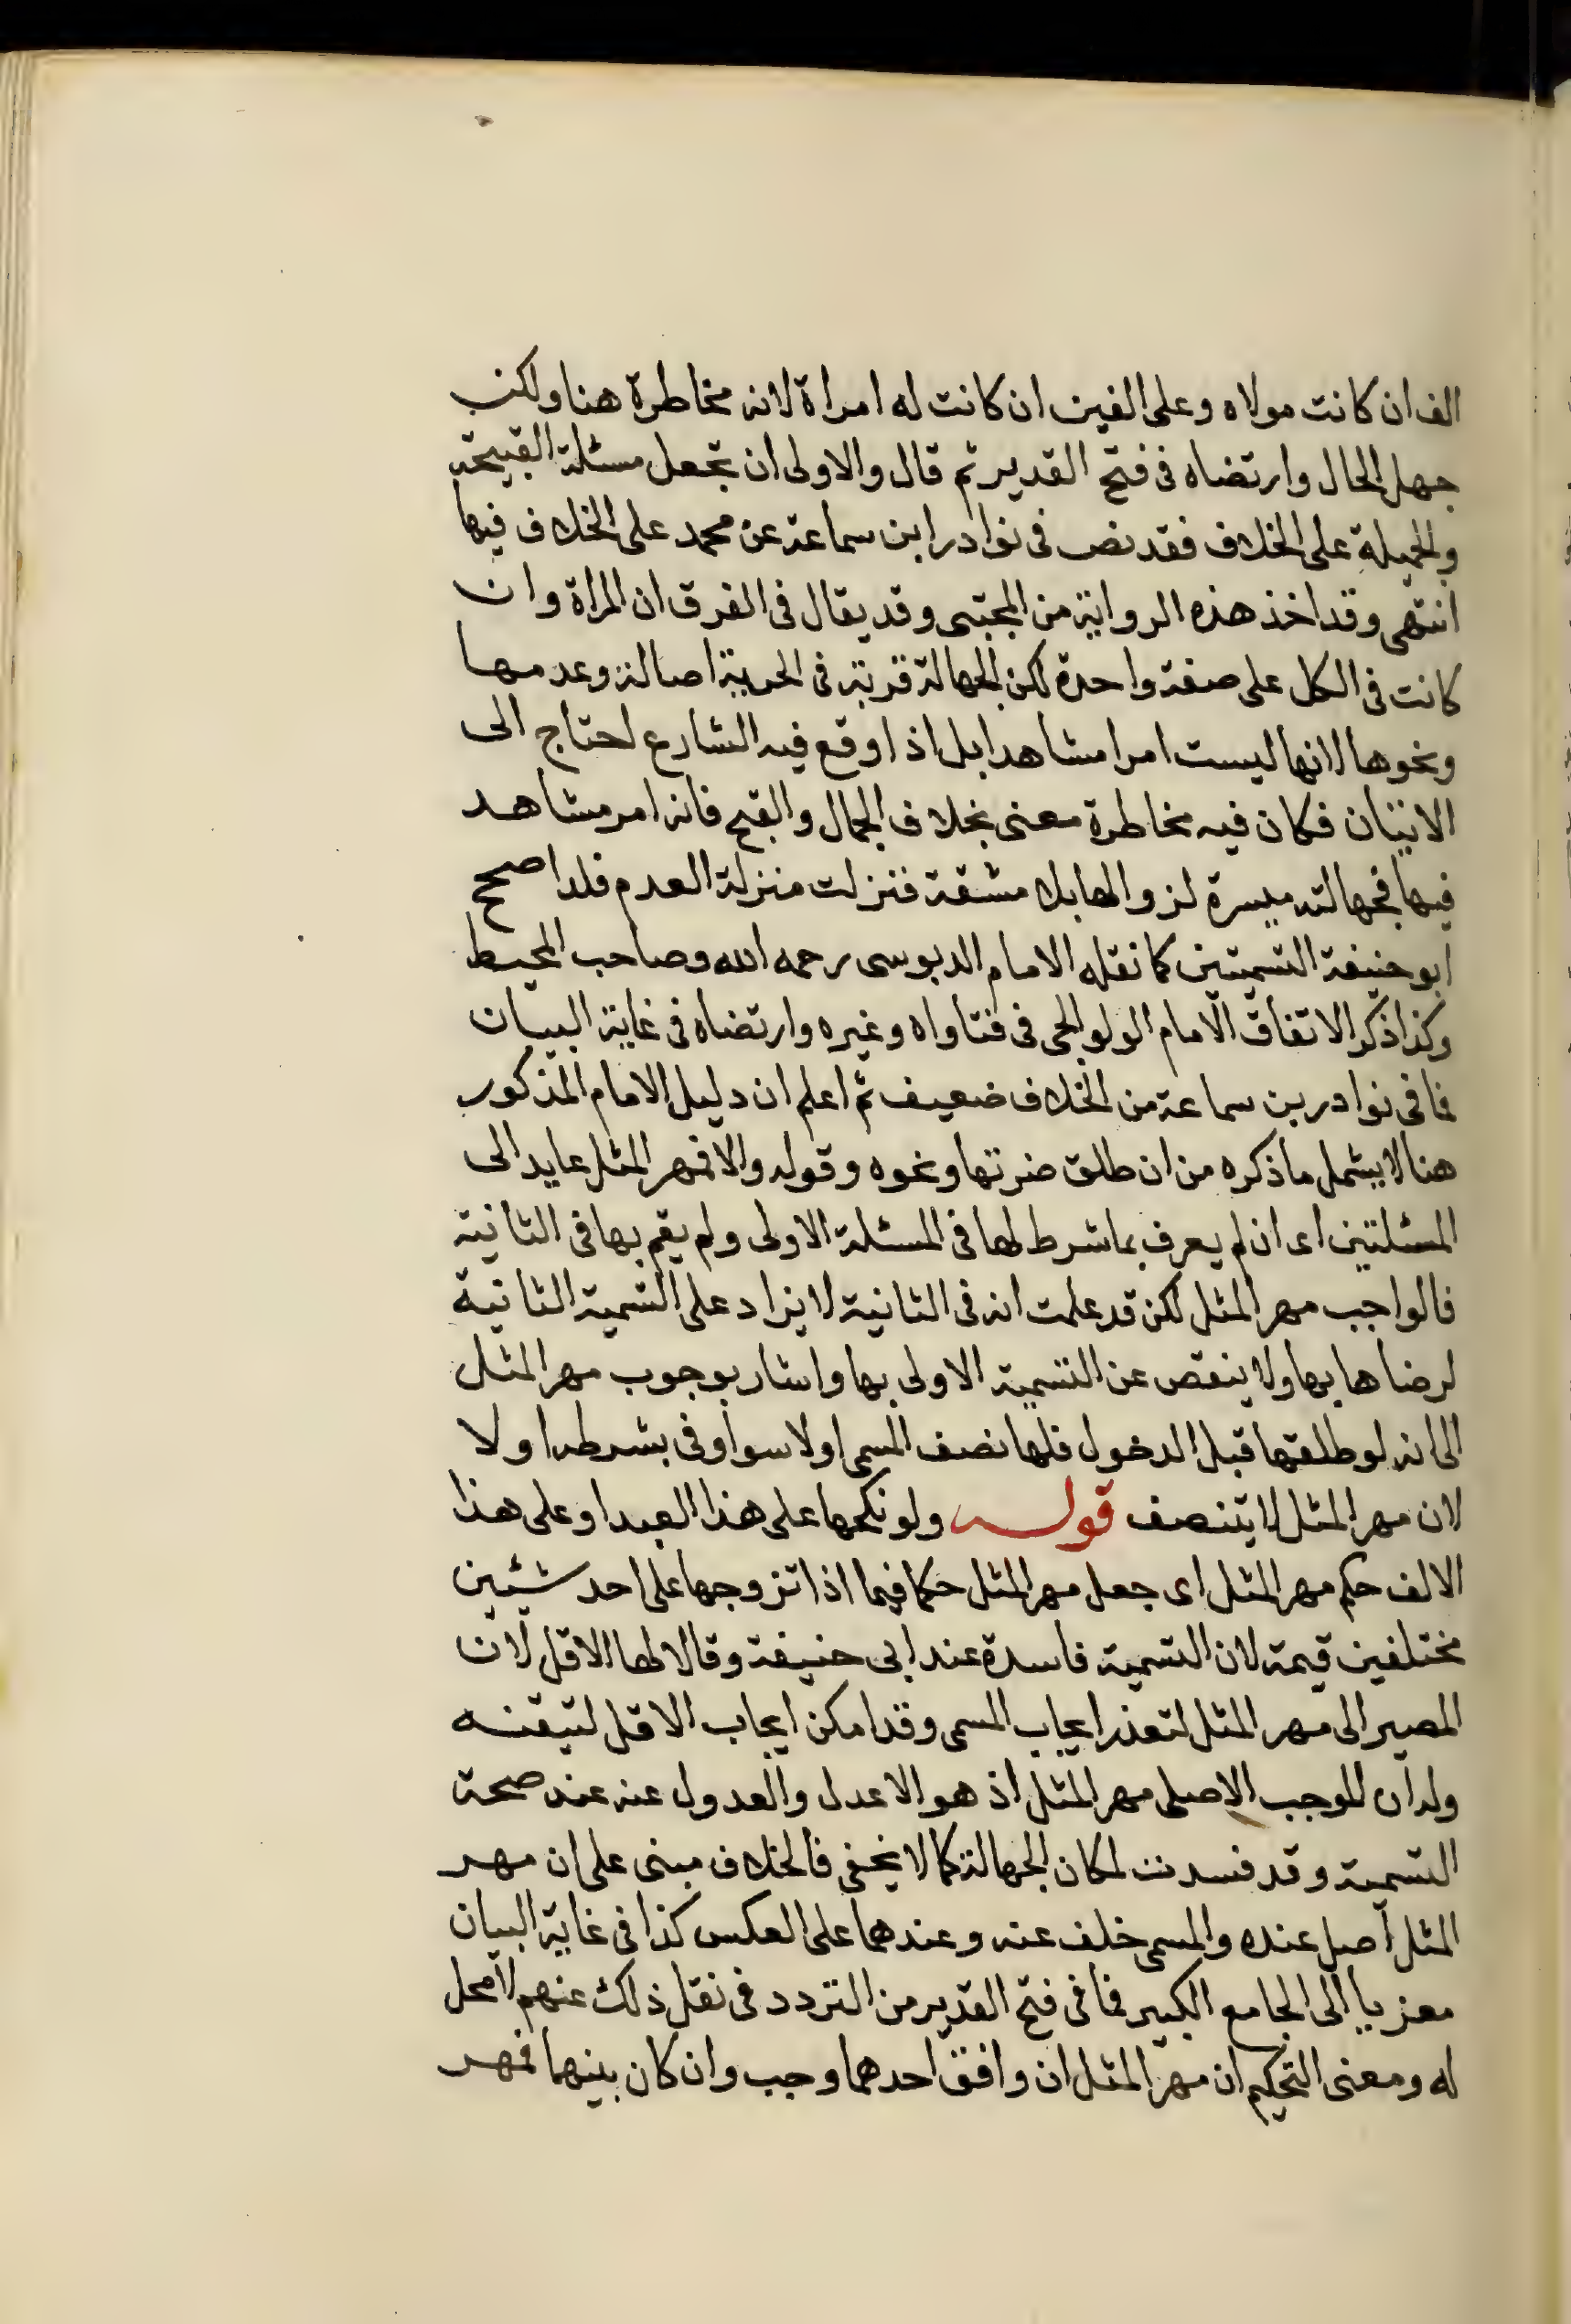 الف ان كانت مولاه وعلى الفين ان كانت له امراة لانه مخاطرة هنا ولكن
جهل الحال وارتضاه فى فتح القدير ثم قال والاولى ان تجعل مسئلة القبيحة
والجميلة على الخلاف فقد نص فى نوادر ابن سماعة عن محمد على الخلاف فيها
انتهى وقد اخذ هذه الرواية من المجتبى وقد يقال فى الفرق ان المراة وان
كانت فى الكل على صفة واحدة لكن الجهالة قوية فى الحرية اصالة وعدمها
ونحوها لانها ليست امرا مشاهدا بل اذا وقع فيه التنازع احتاج الى
الاثبات فكان فيه مخاطرة معنى بخلاف الجمال والقبح فانه امر مشاهد
فيها فجهالته ميسرة لزوالها بلا مشقة فنزلت منزلة العدم فلذا صحح
ابو حنيفة التسميتين كما نقله الامام الدبوسى رحمه الله وصاحب المحيط
وكذا ذكر الاتفاق الامام الولوالجى فى فتاواه وغيره وارتضاه فى غاية البيان
فما فى نوادر بن سماعة من الخلاف ضعيف ثم اعلم ان دليل الامام المذكور
هنا لا يشمل ما ذكره من ان طلق ضرتها ونحوه وقوله والا فمهر المثل عايد الى
المسئلتين اى ان لم يعرف بما شرط لها فى المسئلة الاولى ولم يقم بها فى الثانية
فالواجب مهر المثل لكن قد علمت انه فى الثانية لا يزاد على التسمية الثانية
لرضاها بها ولا ينقص عن التسمية الاولى بها واشار بوجوب مهر المثل
الى انه لو طلقها قبل الدخول فلها نصف المسمى اولا سوا وفى بشرطه او لا
لان مهر المثل لا يتنصف قوله ولو نكحها على هذا العبد او على هذا
الالف حكم مهر المثل اى جعل مهر المثل حكما فيما اذا تزوجها على احد شيئين
مختلفين قيمة لان التسمية فاسدة عند ابى حنيفة وقالا لها الاقل لان
المصير الى مهر المثل لتعذر ايجاب المسمى وقد امكن ايجاب الاقل لتيقنه
وله ان الموجب الاصلى مهر المثل اذ هو الاعدل والعدول عنه عند صحة
التسمية وقد فسدت لمكان الجهالة كما لا يخفى فالخلاف مبنى على ان مهر
المثل اصل عنده والمسمى خلف عنه وعندهما على العكس كذا فى غاية البيان
معزيا الى الجامع الكبير فما فى فتح القدير من التردد فى نقل ذلك عنهم لا محل
له ومعنى التحكيم ان مهر المثل ان وافق احدهما وجب وان كان بينهما فمهر